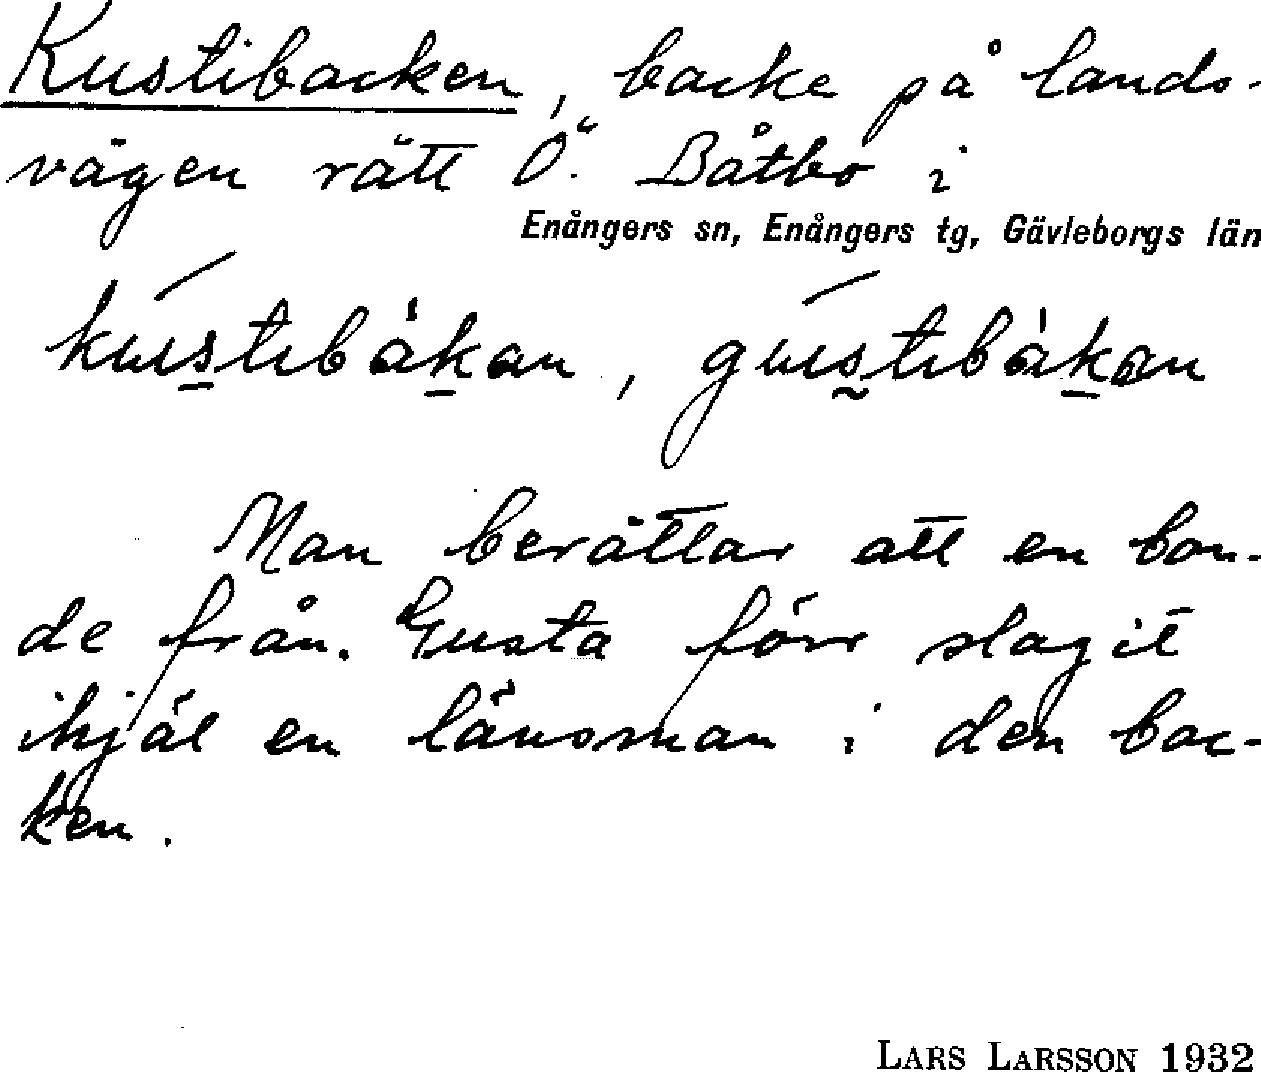 Kustibacken, backe på lands-
vägen rätt Ö. Båtbo i
Enångers sn, Enångers tg, Gävleborgs län
kustibàkan, gustibàkan
Man berättar att en bon-
de från Gusta förr slagit
ihjäl en länsman i den bac-
ken.
LARS LARSSON 1932